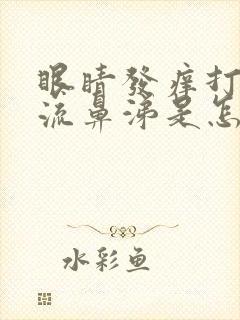 眼睛發痒打
流鼻涕是怎
水彩鱼